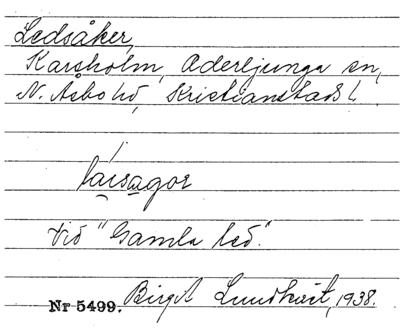 Ledsåker,
Karsholm, Åderljunga sn,
N. Åsbo hd, Kristianstads l.
Vid "Gamla led".
Nr 5499. Birgit Lundkvist, 1938.